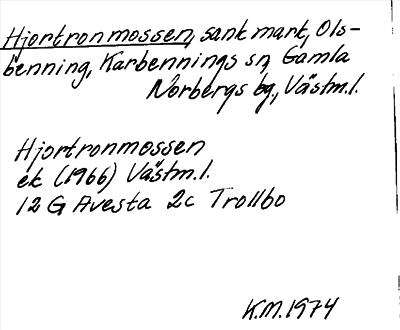 Hjortronmossen, sank mark, Ols-
benning, Karbennings sn, Gamla
Norbergs bg., Västm.l.
Hjortronmossen
ek (1966) Västm.l.
12 G Avesta 2c Trollbo
K.M. 1974